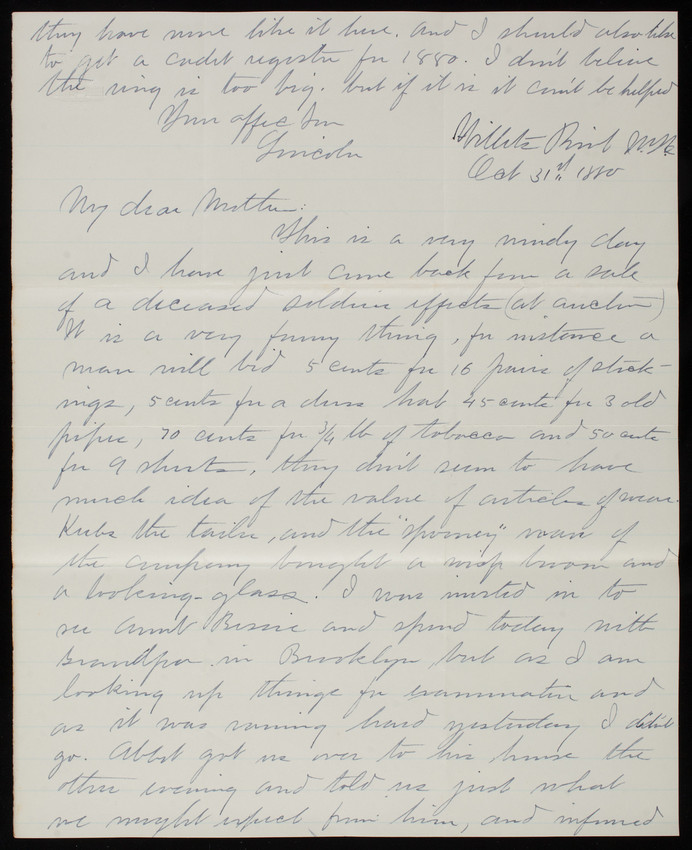 they have none like it here. And I should also like
to get a cadet register for 1880. I don't believe
the ring is too big. but if it is it can't be helped
Your affec Son
Lincoln
Willets Point N.Y.
Oct 31st 1880
My dear Mother:
This is a very windy day
and I have just come back from a sale
of a deceased soldiers effects (at auction)
It is a very funny thing, for instance a
man will bid 5 cents for 16 pairs of stock-
ings, 5 cents for a dress hat 45 cents for 3 old
pipes, 70 cents for 3/4 lb of tobacco and 50 cents
for 9 shirts, they don't seem to have
much idea of the value of articles of wear.
Kubs the tailor, and the "spooney" man of
the company bought a wisp broom and
a looking-glass. I was invited in to
see aunt Bessie and spend today with
Grandpa in Brooklyn, but as I am
looking up things for examination and
as it was raining hard yesterday I didn't
go. Abbot got us over to his house the
other evening and told us just what
we might expect from him, and informed